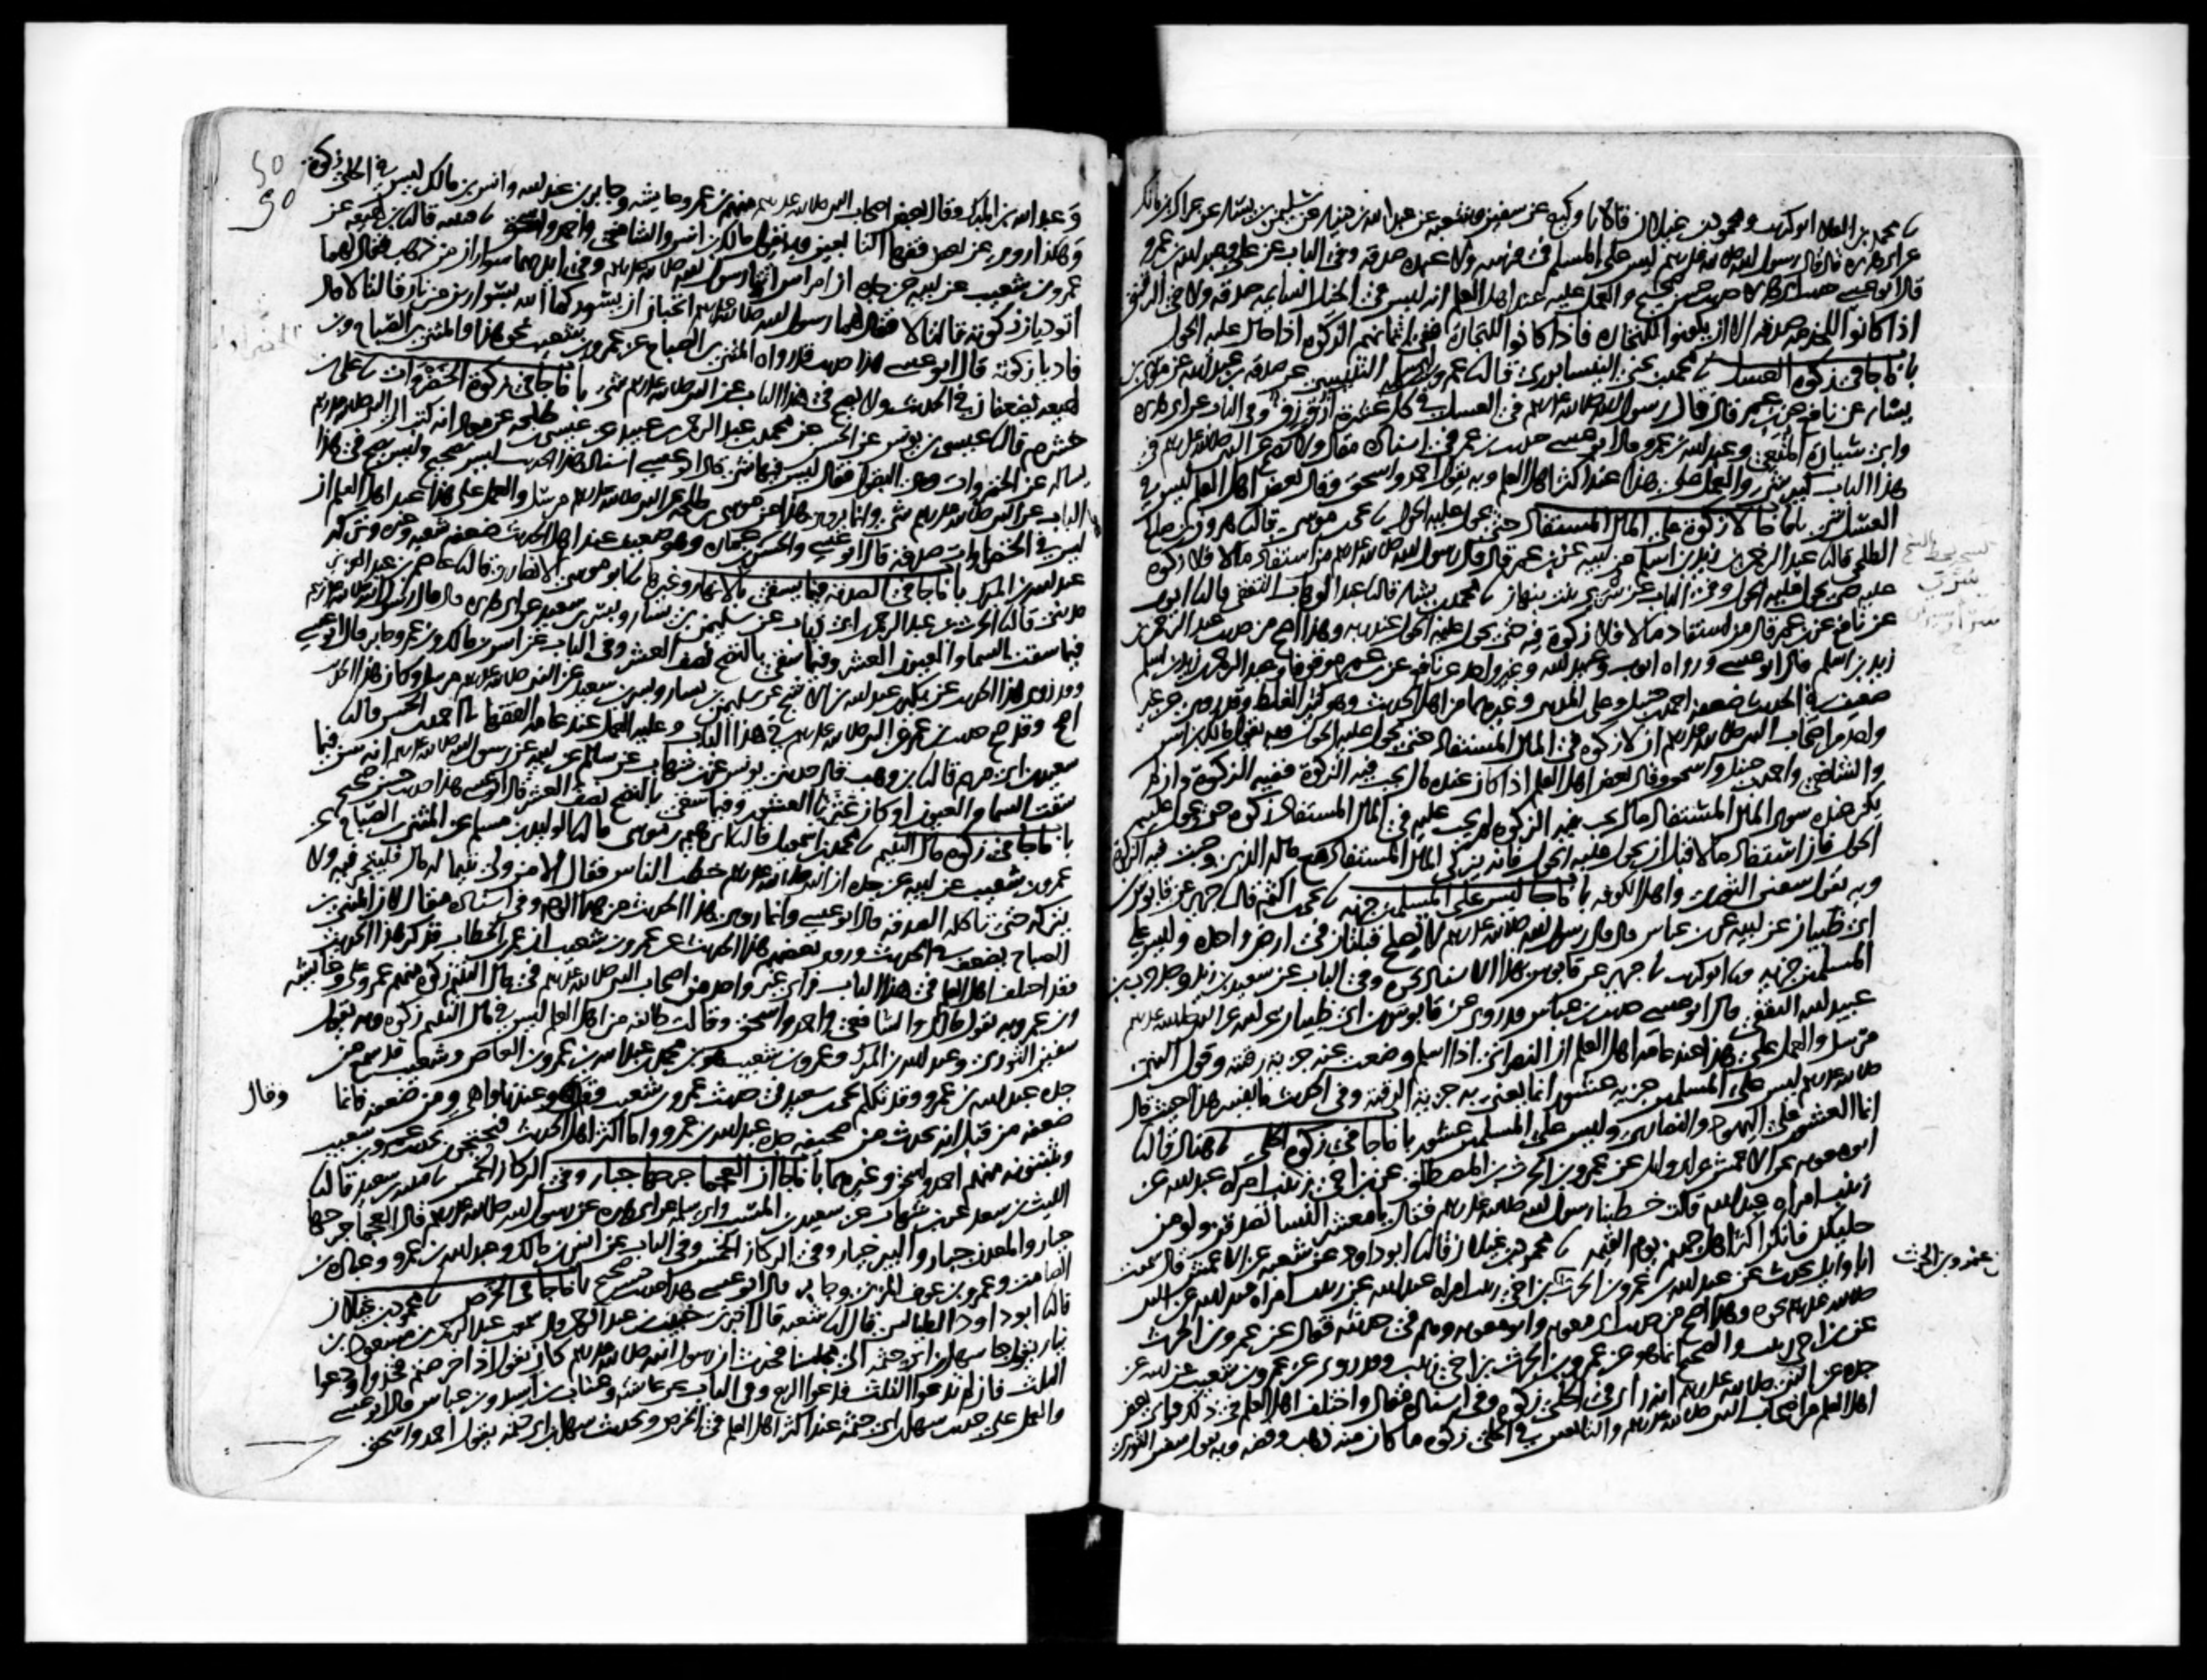 ما محمد بن العلا ابو كريب ومحمود بن غيلان قالا ما وكيع عن سفيان وشعبه عن عبد الله بن دينار عن سليمن بن يسار عن عراك بن مالك
عن ابي هريره قال قال رسول الله صلى الله عليه وسلم ليس على المسلم في فرسه ولا عبده صدقه وفي الباب عن علي وعبد الله بن عمرو
قال ابو عيسى حديث ابي هريره حديث حسن صحيح والعمل عليه عند اهل العلم انه ليس في الخيل السايمه صدقه ولا في الرقيق
اذا كانوا للخدمه صدقه الا ان يكونوا للتجاره فاذا كانوا للتجاره ففي اثمانهم الزكوه اذا حال عليه الحول
باب ما جا في زكوه العسل ما محمد بن يحيى النيسابوري قال ما عمرو بن ابي سلمه التنيسي عن صدقه بن عبد الله عن موسى بن
يسار عن نافع عن ابن عمر قال قال رسول الله صلى الله عليه وسلم في العسل في كل عشره ازق زق وفي الباب عن ابي هريره
وابي سياره المتعي وعبد الله بن عمرو قال ابو عيسى حديث ابن عمر في اسناده مقال ولا يصح عن النبي صلى الله عليه وسلم في
هذا الباب كبير شي والعمل على هذا عند اكثر اهل العلم وبه يقول احمد واسحق وقال بعض اهل العلم ليس في
العسل شي باب ما جا لا زكوه على المال المستفاد حتى يحول عليه الحول ما يحيى بن موسى قال ما هرون بن صالح
الطلحي قال ما عبد الرحمن بن زيد بن اسلم عن ابيه عن ابن عمر قال قال رسول الله صلى الله عليه وسلم من استفاد مالا فلا زكوه
عليه حتى يحول عليه الحول وفي الباب عن سرى بنت نبهان ما محمد بن بشار قال ما عبد الوهاب الثقفي قال ما ايوب
عن نافع عن ابن عمر قال من استفاد مالا فلا زكوه فيه حتى يحول عليه الحول عند ربه وهذا اصح من حديث عبد الرحمن بن
زيد بن اسلم قال ابو عيسى ورواه ايوب وعبيد الله وغير واحد عن نافع عن ابن عمر موقوفا وعبد الرحمن بن زيد بن اسلم
ضعيف في الحديث ضعفه احمد بن حنبل وعلي بن المديني وغيرهما من اهل الحديث وهو كثير الغلط وقد روي عن غير
واحد من اصحاب النبي صلى الله عليه وسلم ان لا زكوه في المال المستفاد حتى يحول عليه الحول وبه يقول مالك بن انس
والشافعي واحمد بن حنبل واسحق وقال بعض اهل العلم اذا كان عنده مال يجب فيه الزكوة ففيه الزكوة وان لم
يكن عنده سوى المال المستفاد مال يجب فيه الزكوه لم يجب عليه في المال المستفاد زكوه حتى يحول عليه
الحول فان استفاد مالا قبل ان يحول عليه الحول فانه يزكي المال المستفاد مع ماله الذي وجبت فيه الزكوة
وبه يقول سفين الثوري واهل الكوفه باب ما جا ليس على المسلمين جزيه ما يحيى بن اكثم قال ما جرير عن قابوس بن
ابي ظبيان عن ابيه عن ابن عباس قال قال رسول الله صلى الله عليه وسلم لا تصلح قبلتان في ارض واحده وليس على
المسلمين جزيه ما ابو كريب ما جرير عن قابوس بهذا الاسناد نحوه وفي الباب عن سعيد بن زيد وجد حرب بن
عبيد الله الثقفي قال ابو عيسى حديث ابن عباس قد روي عن قابوس بن ابي ظبيان عن ابيه عن النبي صلى الله عليه وسلم
مرسل والعمل على هذا عند عامه اهل العلم ان النصراني اذا اسلم وضعت عنه جزيه رقبته وقول النبي
صلى الله عليه وسلم ليس على المسلمين جزيه عشور انما يعني به جزيه الرقبه وفي الحديث ما يفسر هذا حيث قال
انما العشور على اليهود والنصارى وليس على المسلمين عشور باب ما جا في زكوه الحلي ما هناد قال ما
ابو معويه عن الاعمش عن ابي وايل عن عمرو بن الحارث بن المصطلق عن ابن اخي زينب امراه عبد الله عن
زينب امراه عبد الله قالت خطبنا رسول الله صلى الله عليه وسلم فقال يا معشر النسا تصدقن ولو من
حليكن فانكن اكثر اهل جهنم يوم القيمه ما محمود بن غيلان قال ما ابو داود عن شعبه عن الاعمش قال سمعت
ابا وايل يحدث عن عمرو بن الحرث بن اخي زينب امراه عبد الله عن زينب امراه عبد الله عن النبي
صلى الله عليه وسلم نحوه وهذا اصح من حديث ابي معويه وابو معويه وهم في حديثه فقال عن عمرو بن الحرث
عن ابن اخي زينب والصحيح انما هو عن عمرو بن الحرث بن اخي زينب وقد روي عن عمرو بن شعيب عن ابيه عن
جده عن النبي صلى الله عليه وسلم انه راى في الحلي زكوه وفي اسناده مقال واختلف اهل العلم في ذلك فراى بعض
اهل العلم من اصحاب النبي صلى الله عليه وسلم والتابعين في الحلي زكوه ما كان منه ذهب وفضه وبه يقول سفين الثوري
عن عمرو بن الحرث
وعبد الله بن المبرك وقال بعض اصحاب النبي صلى الله عليه وسلم منهم ابن عمر وعايشه وجابر بن عبد الله وانس بن مالك ليس في الحلي زكوه
وهكذا روي عن بعض فقها التابعين وبه يقول مالك بن انس والشافعي واحمد واسحق ما قتيبه قال ما ابن لهيعه عن
عمرو بن شعيب عن ابيه عن جده ان امراتين اتتا رسول الله صلى الله عليه وسلم وفي ايديهما سواران من ذهب فقال لهما
اتوديان زكوته قالتا لا فقال لهما رسول الله صلى الله عليه وسلم اتحبان ان يسوركما الله بسوارين من نار قالتا لا قال
فاديا زكوته قال ابو عيسى هذا حديث قد رواه المثنى بن الصباح عن عمرو بن شعيب نحو هذا والمثنى بن الصباح وابن
لهيعه يضعفان في الحديث ولا يصح في هذا الباب عن النبي صلى الله عليه وسلم شي باب ما جا في زكوه الخضروات ما علي بن
خشرم قال ما عيسى بن يونس عن الحسن عن محمد بن عبد الرحمن بن عبيد عن عيسى بن طلحه عن معاذ انه كتب الى النبي صلى الله عليه وسلم
يساله عن الخضروات وهي البقول فقال ليس فيها شي قال ابو عيسى اسناد هذا الحديث ليس بصحيح وليس يصح في هذا
الباب عن النبي صلى الله عليه وسلم شي وانما يروى هذا عن موسى بن طلحه عن النبي صلى الله عليه وسلم مرسل والعمل على هذا عند اهل العلم ان
ليس في الخضراوات صدقه قال ابو عيسى والحسن بن عماره وهو ضعيف عند اهل الحديث ضعفه شعبه وغيره وتركه
عبد الله بن المبرك باب ما جا في الصدقه فيما يسقى بالانهار وغيرها ما ابو موسى الانصاري قال ما عاصم بن عبد العزيز
مديني قال ما الحرث بن عبد الرحمن بن ابي ذباب عن سليمن بن يسار وبسر بن سعيد عن ابي هريره قال قال رسول الله صلى الله عليه وسلم
فيما سقت السما والعيون العشر وفيما سقي بالنضح نصف العشر وفي الباب عن انس بن مالك وابن عمر وجابر قال ابو عيسى
وقد روي هذا الحديث عن بكير بن عبد الله بن الاشج عن سليمن بن يسار وبسر بن سعيد عن النبي صلى الله عليه وسلم مرسل وكان هذا الحديث
اصح وقد صح حديث ابن عمر عن النبي صلى الله عليه وسلم في هذا الباب وعليه العمل عند عامه الفقها ما احمد بن الحسن قال ما
سعيد بن ابي مريم قال ما ابن وهب قال حدثني يونس عن ابن شهاب عن سالم عن ابيه عن رسول الله صلى الله عليه وسلم انه سن فيما
سقت السما والعيون او كان عثريا العشور وفيما سقي بالنضح نصف العشر قال ابو عيسى هذا حديث حسن صحيح
باب ما جا في زكوه مال اليتيم ما محمد بن اسمعيل قال ما ابرهيم بن موسى قال ما الوليد بن مسلم عن المثنى بن الصباح عن
عمرو بن شعيب عن ابيه عن جده ان النبي صلى الله عليه وسلم خطب الناس فقال الا من ولي يتيما له مال فليتجر فيه ولا
يتركه حتى تاكله الصدقه قال ابو عيسى وانما روي هذا الحديث من هذا الوجه وفي اسناده مقال لان المثنى بن
الصباح يضعف في الحديث وروى بعضهم هذا الحديث عن عمرو بن شعيب ان عمر بن الخطاب فذكر هذا الحديث
وقد اختلف اهل العلم في هذا الباب فراى غير واحد من اصحاب النبي صلى الله عليه وسلم في مال اليتيم زكوه منهم عمر وعلي وعايشه
وابن عمر وبه يقول مالك والشافعي واحمد واسحق وقالت طايفه من اهل العلم ليس في مال اليتيم زكوه وبه يقول
سفين الثوري وعبد الله بن المبرك وعمرو بن شعيب هو ابن محمد بن عبد الله بن عمرو بن العاص وشعيب قد سمع من
جده عبد الله بن عمرو وقد تكلم يحيى بن سعيد في حديث عمرو بن شعيب وقال هو عندنا واهي ومن ضعفه فانما
ضعفه من قبل انه يحدث من صحيفه جده عبد الله بن عمرو واما اكثر اهل الحديث فيحتجون بحديث عمرو بن شعيب
ويثبتونه منهم احمد واسحق وغيرهما باب ما جا ان العجما جرحها جبار وفي الركاز الخمس ما قتيبه بن سعيد قال ما
الليث بن سعد عن ابن شهاب عن سعيد بن المسيب وابي سلمه عن ابي هريره عن رسول الله صلى الله عليه وسلم قال العجما جرحها
جبار والمعدن جبار والبير جبار وفي الركاز الخمس وفي الباب عن انس بن مالك وعبد الله بن عمرو وعباده بن
الصامت وعمرو بن عوف المزني وجابر قال ابو عيسى هذا حديث حسن صحيح باب ما جا في الخرص ما محمود بن غيلان
قال ما ابو داود الطيالسي قال ما شعبه قال اخبرني خبيب بن عبد الرحمن قال سمعت عبد الرحمن بن مسعود بن
نيار يقول جا سهل بن ابي حثمه الى مجلسنا فحدث ان رسول الله صلى الله عليه وسلم كان يقول اذا خرصتم فخذوا ودعوا
الثلث فان لم تدعوا الثلث فدعوا الربع وفي الباب عن عايشه وعتاب بن اسيد وابن عباس قال ابو عيسى
والعمل على حديث سهل بن ابي حثمه عند اكثر اهل العلم في الخرص وبحديث سهل بن ابي حثمه يقول احمد واسحق
وقال
50
50